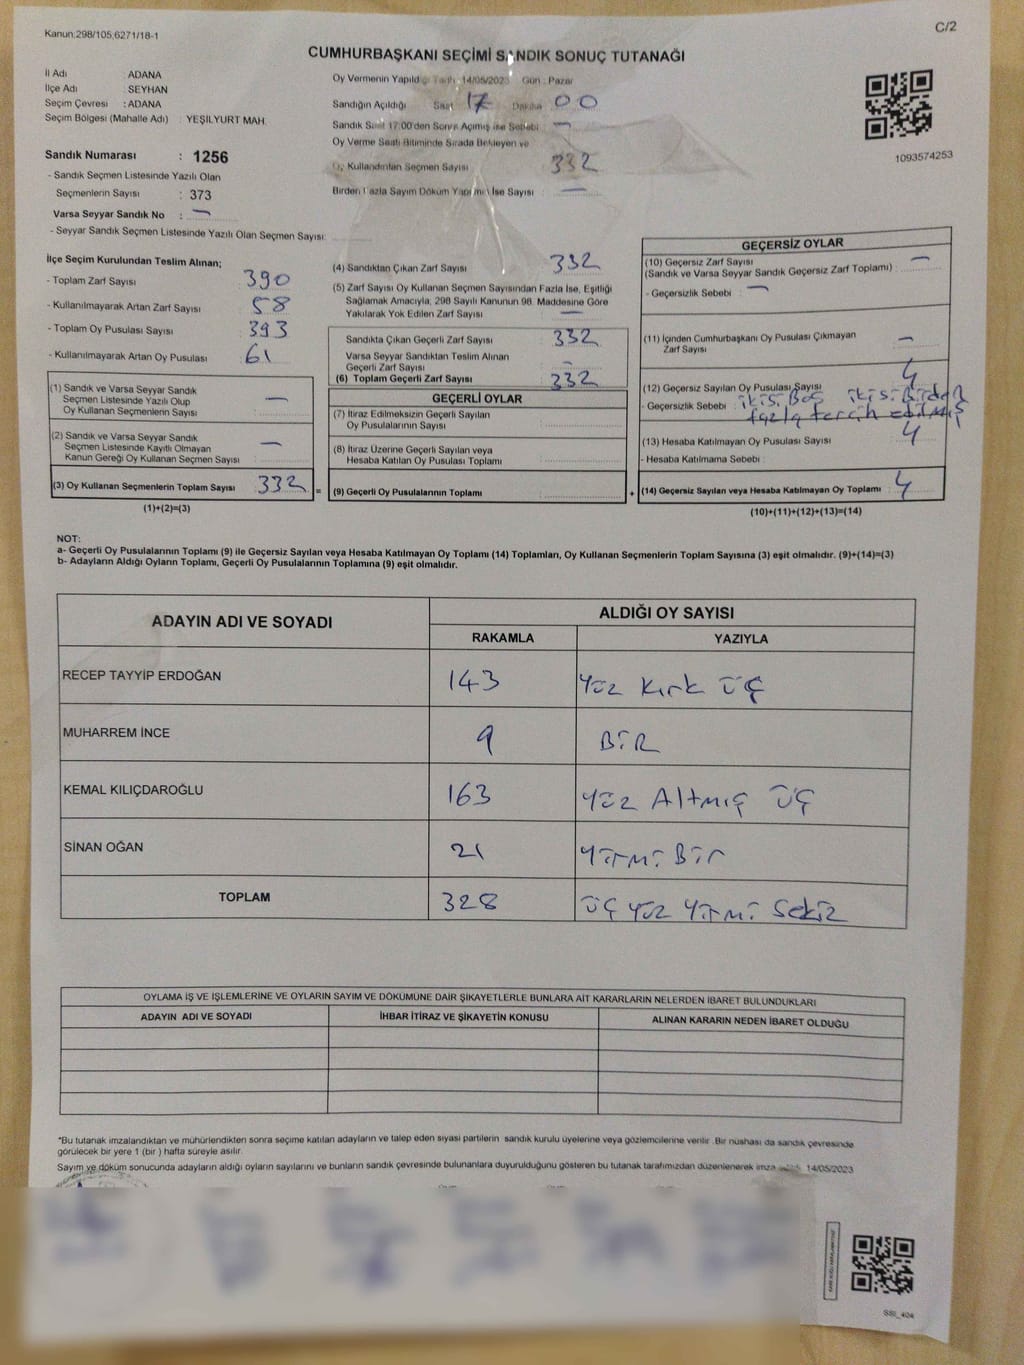 Kanun:298/105,6271/18-1
C/2
CUMHURBAŞKANI SEÇİMİ SANDIK SONUÇ TUTANAĞI
İl Adı : ADANA
İlçe Adı : SEYHAN
Seçim Çevresi : ADANA
Seçim Bölgesi (Mahalle Adı) : YEŞİLYURT MAH.
Sandık Numarası : 1256
- Sandık Seçmen Listesinde Yazılı Olan
Seçmenlerin Sayısı : 373
Varsa Seyyar Sandık No : —
- Seyyar Sandık Seçmen Listesinde Yazılı Olan Seçmen Sayısı:
Oy Vermenin Yapıldığı Tarih : 14/05/2023 Gün : Pazar
Sandığın Açıldığı Saat 17 Dakika 00
Sandık Saat 17:00'den Sonra Açılmış ise Sebebi —
Oy Verme Saati Bitiminde Sırada Bekleyen ve
Oy Kullandırılan Seçmen Sayısı 332
Birden Fazla Sayım Döküm Yapılmış İse Sayısı —
1093574253
İlçe Seçim Kurulundan Teslim Alınan;
- Toplam Zarf Sayısı : 390
- Kullanılmayarak Artan Zarf Sayısı : 58
- Toplam Oy Pusulası Sayısı : 393
- Kullanılmayarak Artan Oy Pusulası : 61
(1) Sandık ve Varsa Seyyar Sandık
Seçmen Listesinde Yazılı Olup
Oy Kullanan Seçmenlerin Sayısı : —
(2) Sandık ve Varsa Seyyar Sandık
Seçmen Listesinde Kayıtlı Olmayan
Kanun Gereği Oy Kullanan Seçmen Sayısı : —
(3) Oy Kullanan Seçmenlerin Toplam Sayısı : 332 =
(1)+(2)=(3)
(4) Sandıktan Çıkan Zarf Sayısı : 332
(5) Zarf Sayısı Oy Kullanan Seçmen Sayısından Fazla İse, Eşitliği
Sağlamak Amacıyla, 298 Sayılı Kanunun 98. Maddesine Göre
Yakılarak Yok Edilen Zarf Sayısı : —
Sandıkta Çıkan Geçerli Zarf Sayısı : 332
Varsa Seyyar Sandıktan Teslim Alınan
Geçerli Zarf Sayısı : —
(6) Toplam Geçerli Zarf Sayısı : 332
GEÇERLİ OYLAR
(7) İtiraz Edilmeksizin Geçerli Sayılan
Oy Pusulalarının Sayısı :
(8) İtiraz Üzerine Geçerli Sayılan veya
Hesaba Katılan Oy Pusulası Toplamı :
(9) Geçerli Oy Pusulalarının Toplamı : +
GEÇERSİZ OYLAR
(10) Geçersiz Zarf Sayısı
(Sandık ve Varsa Seyyar Sandık Geçersiz Zarf Toplamı) : —
- Geçersizlik Sebebi : —
(11) İçinden Cumhurbaşkanı Oy Pusulası Çıkmayan
Zarf Sayısı : —
(12) Geçersiz Sayılan Oy Pusulası Sayısı : 4
- Geçersizlik Sebebi : ikisi Boş ikisi Birden
fazla tercih edilmiş
(13) Hesaba Katılmayan Oy Pusulası Sayısı : 4
- Hesaba Katılmama Sebebi :
(14) Geçersiz Sayılan veya Hesaba Katılmayan Oy Toplamı : 4
(10)+(11)+(12)+(13)=(14)
NOT:
a- Geçerli Oy Pusulalarının Toplamı (9) ile Geçersiz Sayılan veya Hesaba Katılmayan Oy Toplamı (14) Toplamları, Oy Kullanan Seçmenlerin Toplam Sayısına (3) eşit olmalıdır. (9)+(14)=(3)
b- Adayların Aldığı Oyların Toplamı, Geçerli Oy Pusulalarının Toplamına (9) eşit olmalıdır.
ADAYIN ADI VE SOYADI
ALDIĞI OY SAYISI
RAKAMLA YAZIYLA
RECEP TAYYİP ERDOĞAN 143 Yüz Kırk üç
MUHARREM İNCE 9 BİR
KEMAL KILIÇDAROĞLU 163 Yüz Altmış üç
SİNAN OĞAN 21 Yirmi Bir
TOPLAM 328 üç yüz Yirmi Sekiz
OYLAMA İŞ VE İŞLEMLERİNE VE OYLARIN SAYIM VE DÖKÜMÜNE DAİR ŞİKAYETLERLE BUNLARA AİT KARARLARIN NELERDEN İBARET BULUNDUKLARI
ADAYIN ADI VE SOYADI İHBAR İTİRAZ VE ŞİKAYETİN KONUSU ALINAN KARARIN NEDEN İBARET OLDUĞU
*Bu tutanak imzalandıktan ve mühürlendikten sonra seçime katılan adayların ve talep eden siyasi partilerin sandık kurulu üyelerine veya gözlemcilerine verilir. Bir nüshası da sandık çevresinde
görülecek bir yere 1 (bir) hafta süreyle asılır.
Sayım ve döküm sonucunda adayların aldığı oyların sayılarını ve bunların sandık çevresinde bulunanlara duyurulduğunu gösteren bu tutanak tarafımızdan düzenlenerek imza 14/05/2023
SSI_404